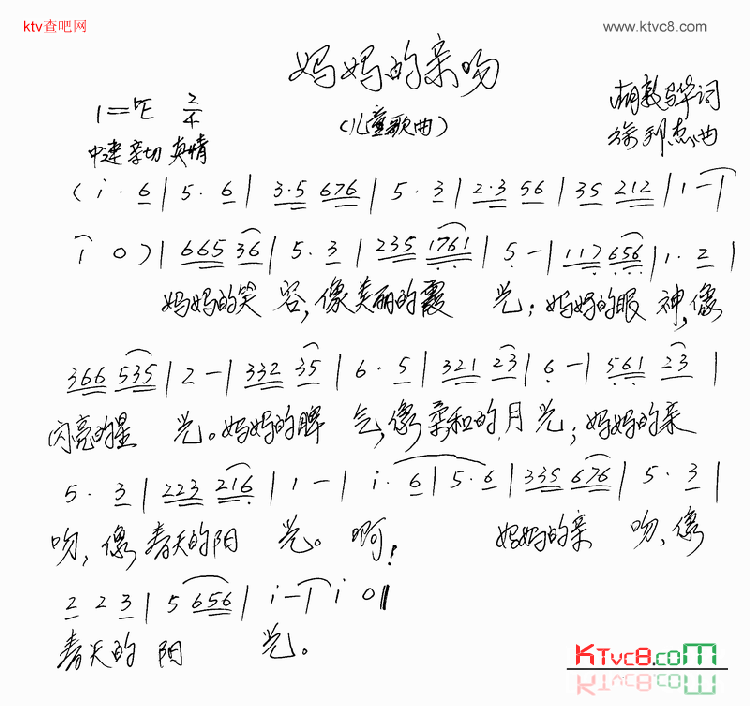 ktv查吧网
www.ktvc8.com
妈妈的亲吻
(儿童歌曲)
1=♭E 2/4
中速 亲切 真情
胡敦骅词
徐邦杰曲
(i. 6 | 5. 6 | 3·5 676 | 5. 3 | 2·3 56 | 35 212 | 1 - |
i 0) | 665 36 | 5. 3 | 235 1761 | 5 - | 117 656 | 1. 2 |
妈妈的笑 容,像美丽的霞 光;妈妈的眼 神,像
366 535 | 2 - | 332 35 | 6. 5 | 321 23 | 6 - | 561 23 |
闪亮的星 光。妈妈的脾 气,像柔和的月光;妈妈的亲
5. 3 | 223 216 | 1 - | i. 6 | 5. 6 | 335 676 | 5. 3 |
吻,像春天的阳 光。啊! 妈妈的亲 吻,像
2 2 3 | 5 656 | i - | i 0 ‖
春天的 阳 光。
KTvc8.com